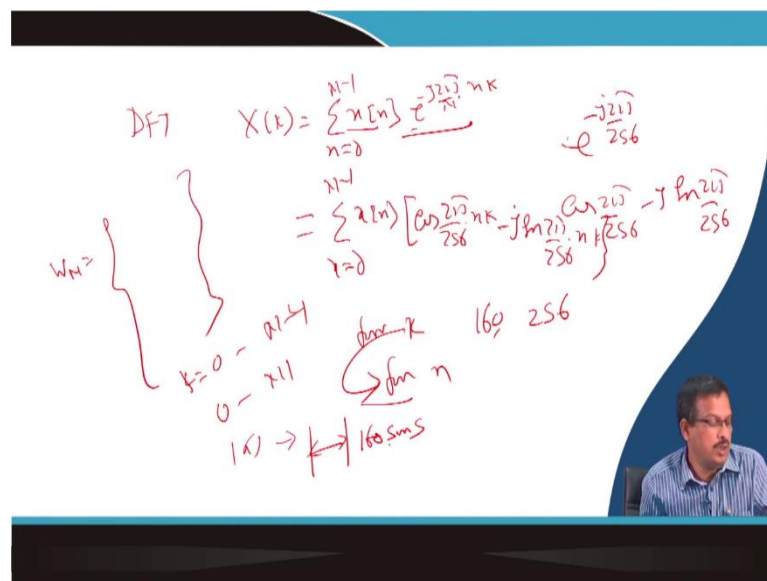 DFT X(k) = N-1 ∑ n=0 x[n] e^-j2π/N nk
e^-j2π/256
= N-1 ∑ n=0 x[n] [cos 2π/256 nk - j sin 2π/256 nk]
cos 2π/256 - j sin 2π/256
W_N =
k=0 - N-1
for k 160, 256
for n
→ 160 sms